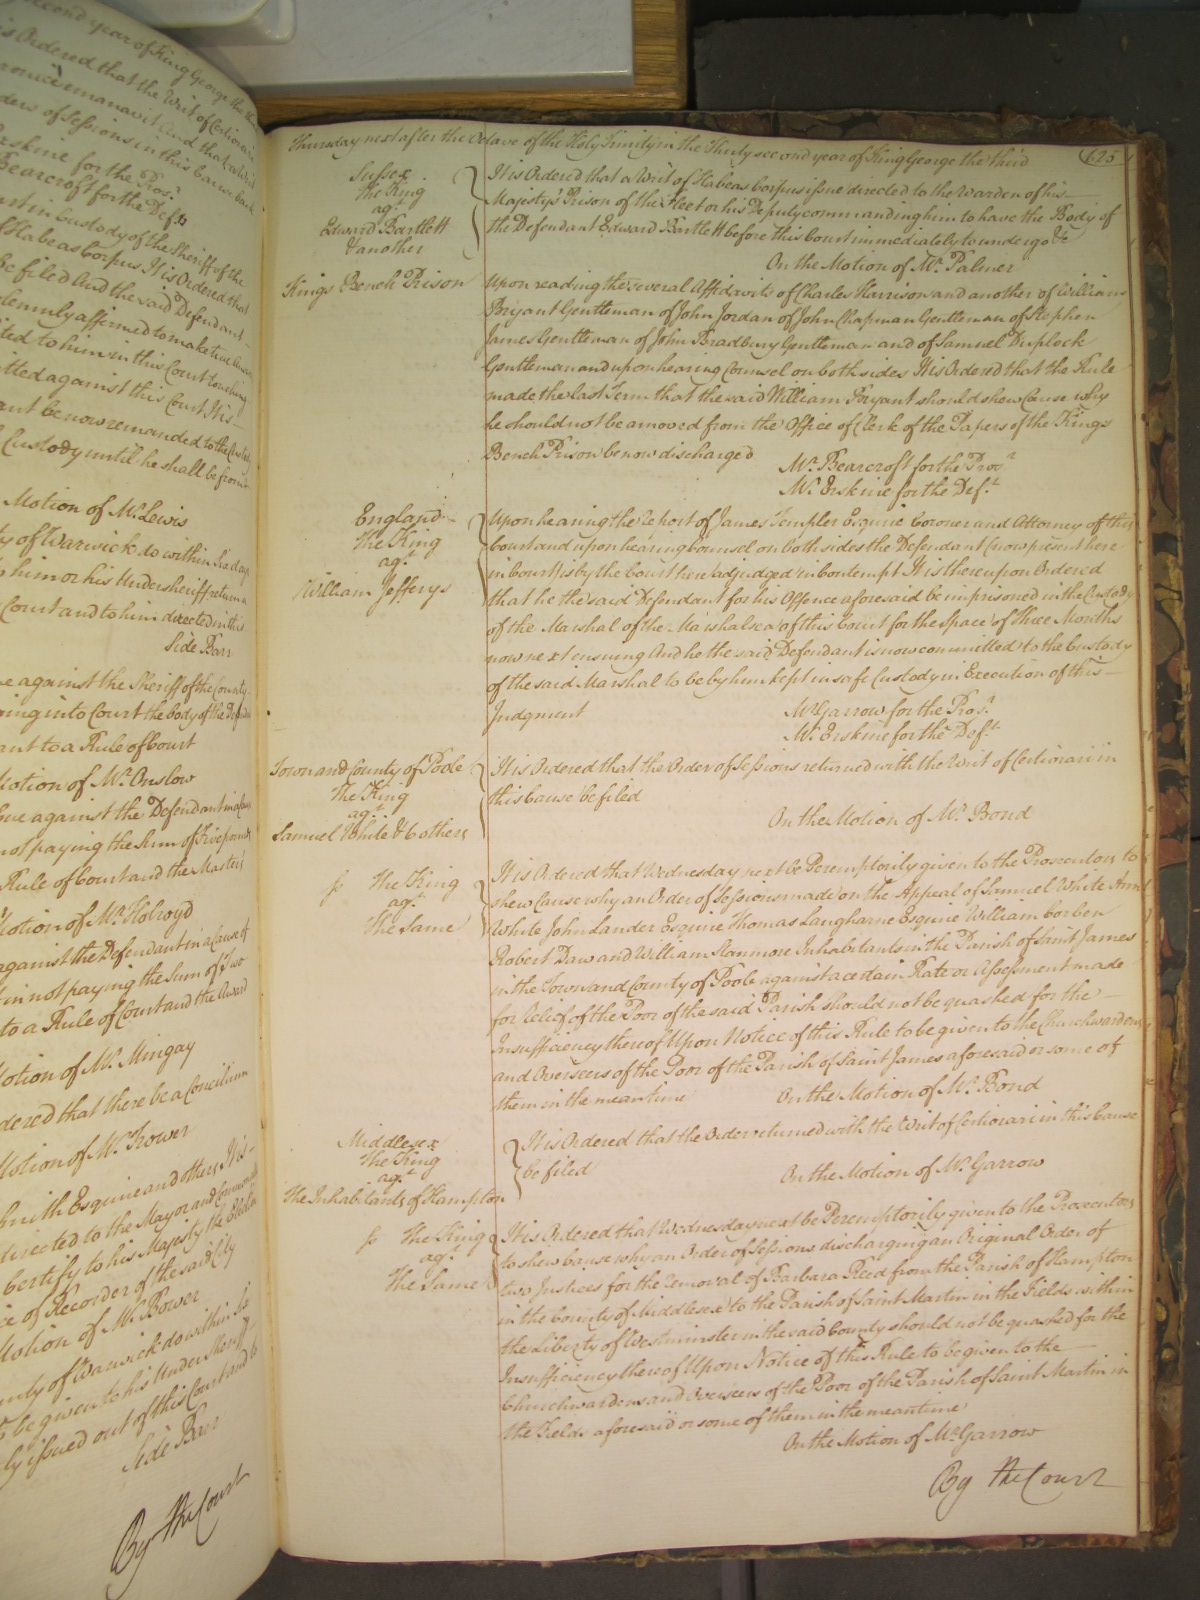 second year of King George the
is Ordered that the Writ of Certiorari
emanavit And that
ders of Sessions in this Cause back
Erskine for the Pros.r
Bearcroft for the Def.ts
in Custody of the Sheriff of the
Habeas Corpus It is Ordered that
be filed And the said Defendant
affirmed to make true Answer
ted to him in this Court touching
tted against this Court It is
ant be now remanded to the
Custody until he shall be from
Motion of Mr. Lewis
ty of Warwick do within Six days
him or his Undersheriff return a
Court and to him directed in this
Side Barr
ve against the Sheriff of the County
bring into Court the body of the
ant to a Rule of Court
Motion of Mr. Onslow
against the Defendant in a
not paying the Sum of Five pounds
Rule of Court and the Master's
Motion of Mr. Holroyd
against the Defendant in a Cause of
in not paying the Sum of Two
to a Rule of Court and the Award
Motion of Mr. Mingay
dered that there be a Concilium
Motion of Mr. Bower
Smith Esquire and others It is
directed to the Mayor and
Certify to his Majesty the Election
of Recorder of the said City
Motion of Mr. Bower
unty of Warwick do within Six
be given to his Under Sheriff
ly issued out of this Court and to
Side Barr
By the Court
Thursday next after the Octave of the Holy Trinity in the Thirty second year of King George the third
625
Sussex
The King
ag.t
Edward Bartlett
& another
It is Ordered that a Writ of Habeas Corpus issue directed to the Warden of his
Majesty's Prison of the Fleet or his Deputy commanding him to have the Body of
the Defendant Edward Bartlett before this Court immediately to undergo &c
On the Motion of Mr. Palmer
Kings Bench Prison
Upon reading the several Affidavits of Charles Harrison and another of William
Bryant Gentleman of John Jordan of John Chapman Gentleman of Stephen
James Gentleman of John Bradbury Gentleman and of Samuel Duplock
Gentleman and upon hearing Counsel on both sides It is Ordered that the Rule
made the last Term that the said William Bryant should shew Cause why
he should not be amoved from the Office of Clerk of the Papers of the Kings
Bench Prison be now discharged
Mr. Bearcroft for the Pros.r
Mr. Erskine for the Def.t
England
The King
ag.t
William Jefferys
Upon hearing the Report of James Templer Esquire Coroner and Attorney of this
Court and upon hearing Counsel on both sides the Defendant (now present here
in Court) is by the Court here adjudged in Contempt It is thereupon Ordered
that he the said Defendant for his Offence aforesaid be imprisoned in the Custody
of the Marshal of the Marshalsea of this Court for the Space of Three Months
now next ensuing And he the said Defendant is now committed to the Custody
of the said Marshal to be by him kept in safe Custody in Execution of this
Judgment
Mr. Garrow for the Pros.r
Mr. Erskine for the Def.t
Town and County of Poole
The King
ag.t
Samuel White & 6 others
It is Ordered that the Order of Sessions returned with the Writ of Certiorari in
this Cause be filed
On the Motion of Mr. Bond
The King
ag.t
The Same
It is Ordered that Wednesday next be Peremptorily given to the Prosecutors to
shew Cause why an Order of Sessions made on the Appeal of Samuel White Ann
White John Lander Esquire Thomas Langharne Esquire William Corben
Robert Daw and William Stanmore Inhabitants in the Parish of Saint James
in the Town and County of Poole against a certain Rate or Assessment made
for Relief of the Poor of the said Parish should not be quashed for the
Insufficiency thereof Upon Notice of this Rule to be given to the Churchwardens
and Overseers of the Poor of the Parish of Saint James aforesaid or some of
them in the meantime
On the Motion of Mr. Bond
Middlesex
The King
ag.t
The Inhabitants of Hampton
It is Ordered that the Order returned with the Writ of Certiorari in this Cause
be filed
On the Motion of Mr. Garrow
The King
ag.t
The Same
It is Ordered that Wednesday next be Peremptorily given to the Prosecutors
to shew Cause why an Order of Sessions discharging an Original Order of
two Justices for the removal of Barbara Reed from the Parish of Hampton
in the County of Middlesex to the Parish of Saint Martin in the Fields within
the Liberty of Westminster in the said County should not be quashed for the
Insufficiency thereof Upon Notice of this Rule to be given to the
Churchwardens and Overseers of the Poor of the Parish of Saint Martin in
the Fields aforesaid or some of them in the meantime
On the Motion of Mr. Garrow
By the Court